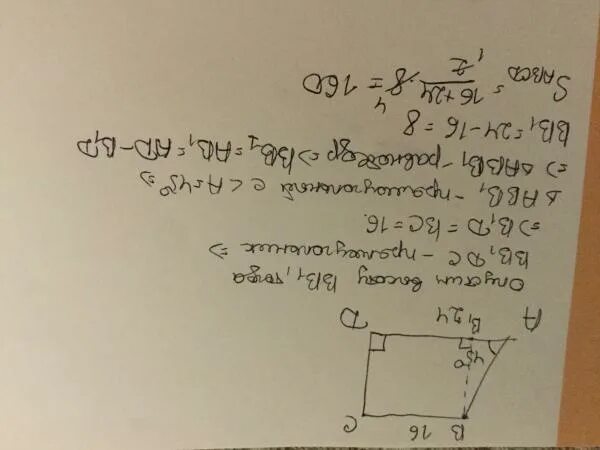 B 16 C
45°
A B₁ 24 D
Опустим высоту BB₁, тогда
BB₁DC - прямоугольник ⇒
⇒ B₁D = BC = 16.
△ABB₁ - прямоугольный с ∠A=45° ⇒
⇒ △ABB₁ - равнобедр ⇒ BB₁ = AB₁ = AD - B₁D
BB₁ = 24 - 16 = 8
S_ABCD = (16+24)/2 · 8 = 160
1 4